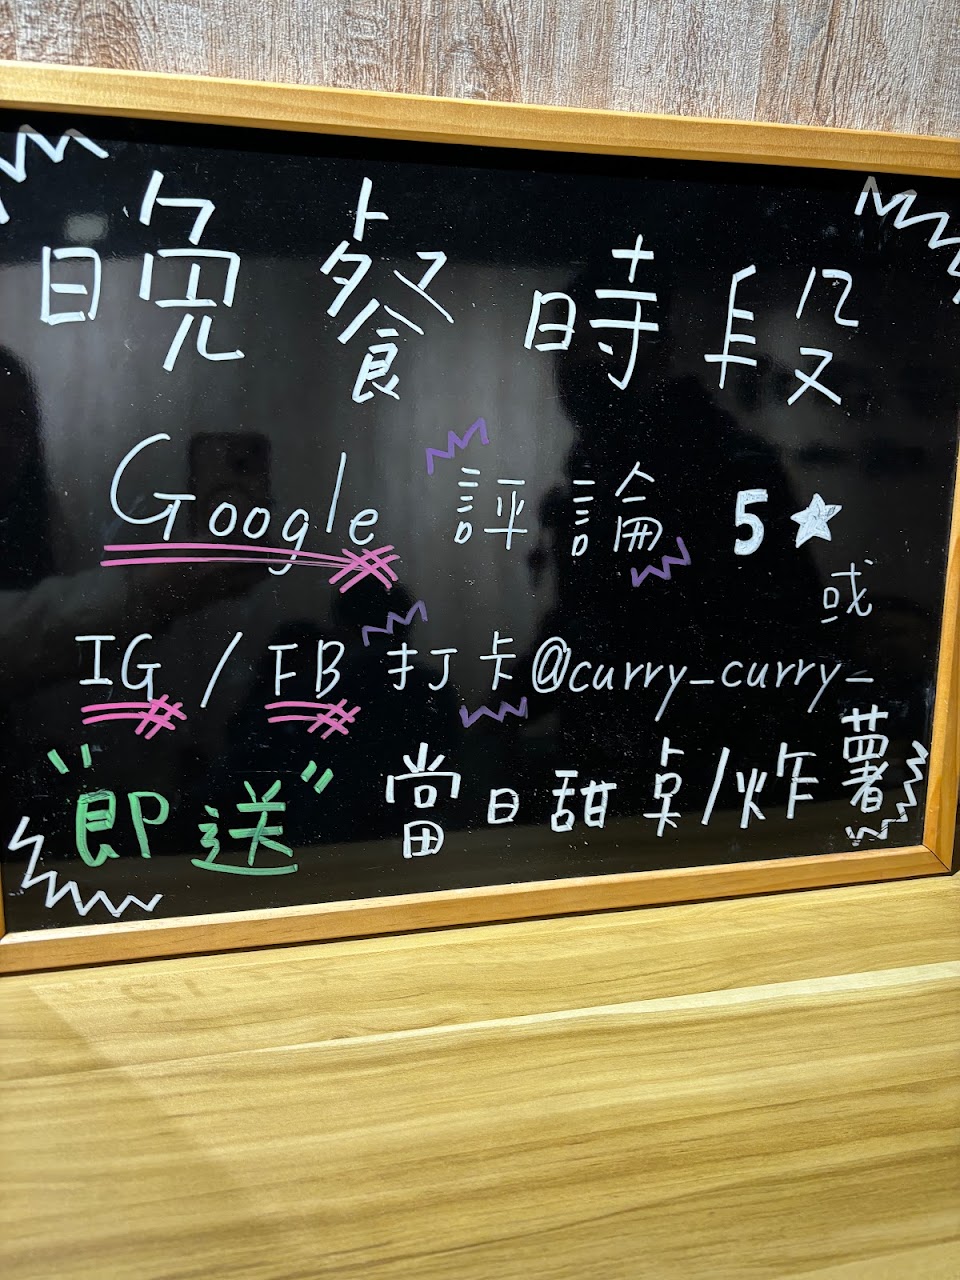 晚餐時段
Google 評論 5★
或
IG / FB 打卡@curry_curry_
"即送" 當日甜點/炸薯